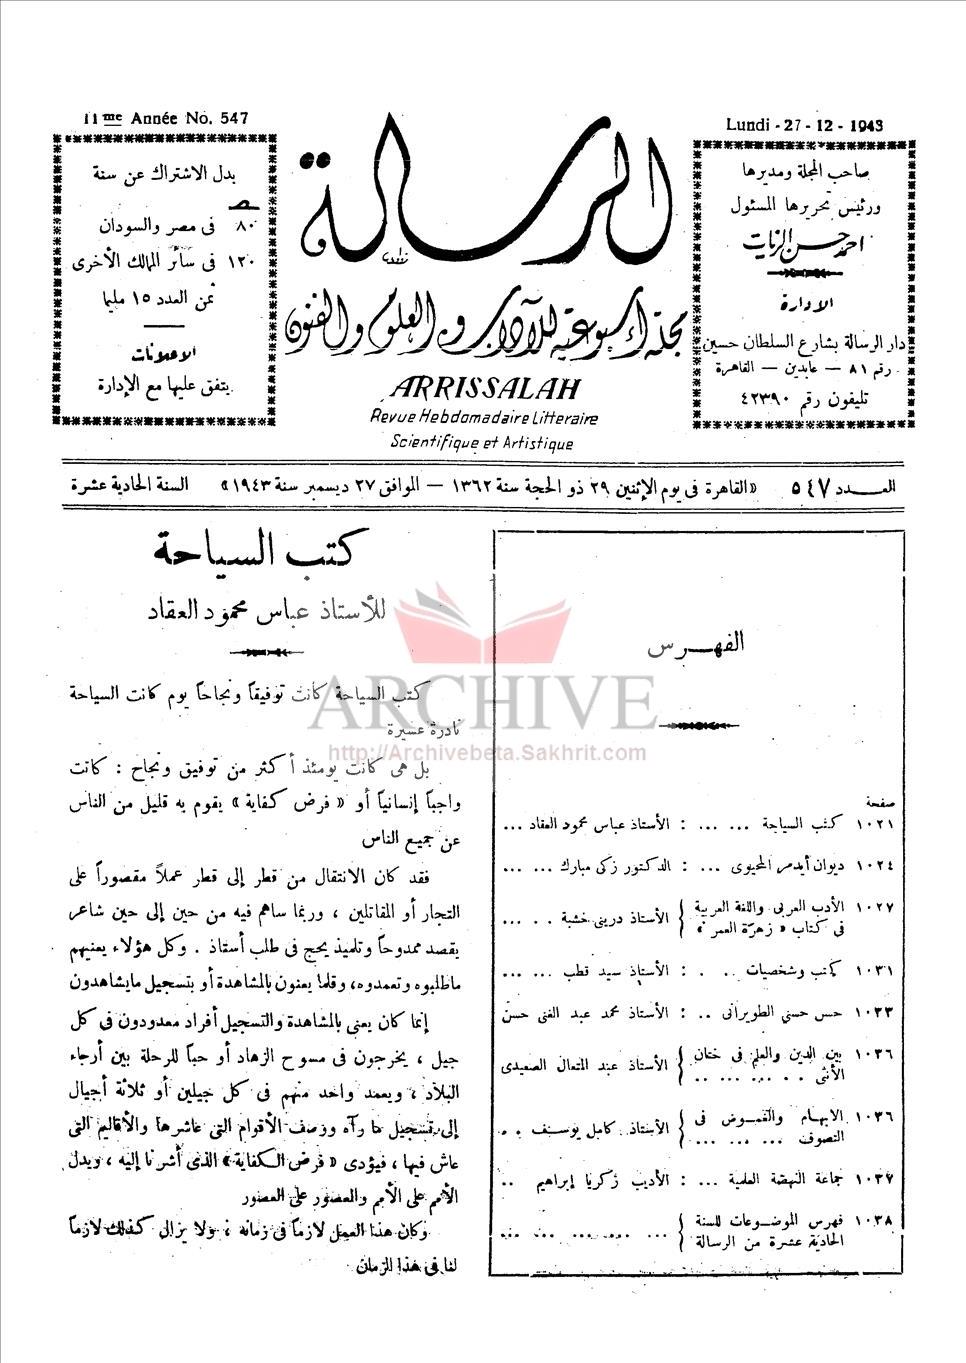 11me Année No. 547
Lundi - 27 - 12 - 1943
صاحب المجلة ومديرها
ورئيس تحريرها المسئول
احمد حسن الزيات
الإدارة
دار الرسالة بشارع السلطان حسين
رقم ٨١ — عابدين — القاهرة
تليفون رقم ٤٢٣٩٠
الرسالة
مجلة أسبوعية للآداب والعلوم والفنون
ARRISSALAH
Revue Hebdomadaire Litteraire
Scientifique et Artistique
بدل الاشتراك عن سنة
ص
٨٠ فى مصر والسودان
١٢٠ فى سائر الممالك الأخرى
ثمن العدد ١٥ مليما
الاعلانات
يتفق عليها مع الإدارة
العـــدد ٥٤٧ «القاهرة فى يوم الإثنين ٢٩ ذو الحجة سنة ١٣٦٢ — الموافق ٢٧ ديسمبر سنة ١٩٤٣» السنة الحادية عشرة
الفهـرس
صفحة
١٠٢١ كتب السياحة ... ... : الأستاذ عباس محمود العقاد ...
١٠٢٤ ديوان أيدمر المحيوى ... : الدكتور زكى مبارك ... ...
١٠٢٧ الأدب العربى واللغة العربية فى كتاب « زهرة العمر » } الأستاذ درينى خشبة . . ...
١٠٣١ كتب وشخصيات .. . : الأستاذ سيد قطب ... ...
١٠٣٣ حسن حسنى الطويرانى .. : الأستاذ محمد عبد الغنى حسن
١٠٣٦ بين الدين والعلم فى ختان الأنثى . . ... ... .. } الأستاذ عبد المتعال الصعيدى
١٠٣٦ الابهام والغموض فى التصوف ... ... ... } الأستاذ كامل يوسف . .
١٠٣٧ جماعة النهضة العلمية ... : الأديب زكريا إبراهيم ..
١٠٣٨ فهرس الموضوعات للسنة الحادية عشرة من الرسالة } ... ... ... ... ...
كتب السياحة
للأستاذ عباس محمود العقاد
كتب السياحة كانت توفيقاً ونجاحاً يوم كانت السياحة
نادرة عسيرة
بل هى كانت يومئذ أكثر من توفيق ونجاح : كانت
واجباً إنسانياً أو « فرض كفاية » يقوم به قليل من الناس
عن جميع الناس
فقد كان الانتقال من قطر إلى قطر عملاً مقصوراً على
التجار أو المقاتلين ، وربما ساهم فيه من حين إلى حين شاعر
يقصد ممدوحاً وتلميذ يحج فى طلب أستاذ . وكل هؤلاء يعنيهم
ماطلبوه وتعمدوه، وقلما يعنون بالمشاهدة أو بتسجيل مايشاهدون
إنما كان يعنى بالمشاهدة والتسجيل أفراد معدودون فى كل
جيل ، يخرجون فى مسوح الزهاد أو حباً للرحلة بين أرجاء
البلاد ، ويعمد واحد منهم فى كل جيلين أو ثلاثة أجيال
إلى تسجيل ما رآه ووصف الأقوام التى عاشرها والأقاليم التى
عاش فيها ، فيؤدى « فرض الكفاية » الذى أشرنا إليه ، ويدل
الأمم على الأمم والعصور على العصور
وكان هذا العمل لازماً فى زمانه ، ولا يزال كذلك لازماً
لنا فى هذا الزمان
ARCHIVE
http://Archivebeta.Sakhrit.com